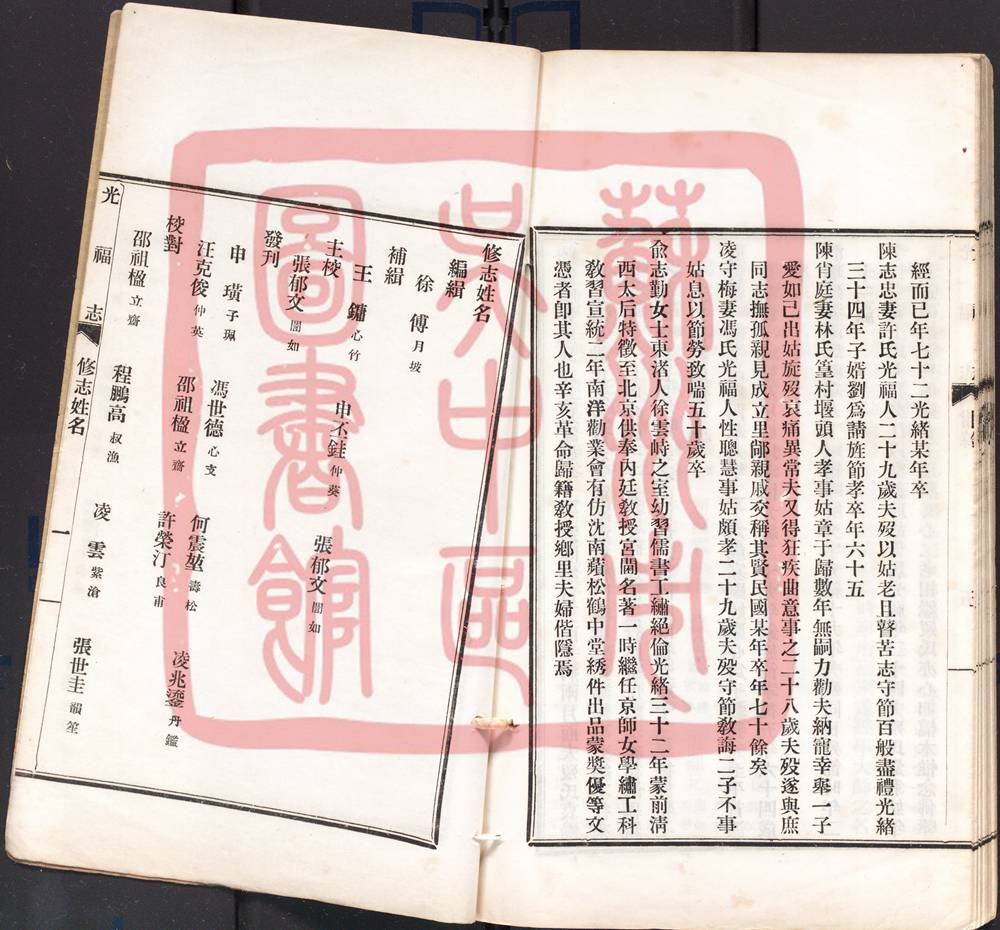 經而已年七十二光緒某年卒
陳志忠妻許氏光福人二十九歲夫歿以姑老且瞽苦志守節百般盡禮光緒
三十四年子婿劉爲請旌節孝卒年六十五
陳肖庭妻林氏篁村堰頭人孝事姑章于歸數年無嗣力勸夫納寵幸舉一子
愛如己出姑旋歿哀痛異常夫又得狂疾曲意事之二十八歲夫歿遂與庶
同志撫孤親見成立里鄰親戚交稱其賢民國某年卒年七十餘矣
凌守梅妻馮氏光福人性聰慧事姑頗孝二十九歲夫歿守節敎誨二子不事
姑息以節勞致喘五十歲卒
俞志勤女士東渚人徐雲峙之室幼習儒書工繡絕倫光緒三十二年蒙前淸
西太后特徵至北京供奉內廷敎授宮闈名著一時繼任京師女學繡工科
敎習宣統二年南洋勸業會有仿沈南蘋松鶴中堂綉件出品蒙奬優等文
憑者卽其人也辛亥革命歸籍敎授鄕里夫婦偕隱焉
修志姓名
編緝
徐傅月坡
補緝
王鏞心竹 申丕銈仲葵 張郁文闇如
主校
張郁文闇如
發刊
申璜子珮 馮世德心支 何震堃壽松 凌兆鎏丹鑑
汪克俊仲英 邵祖楹立齋 許榮汀良甫
校對
邵祖楹立齋 程鵬高叔漁 凌雲紫滄 張世圭韻笙
光福志 修志姓名 一
蘇州市
吳中區
圖書館